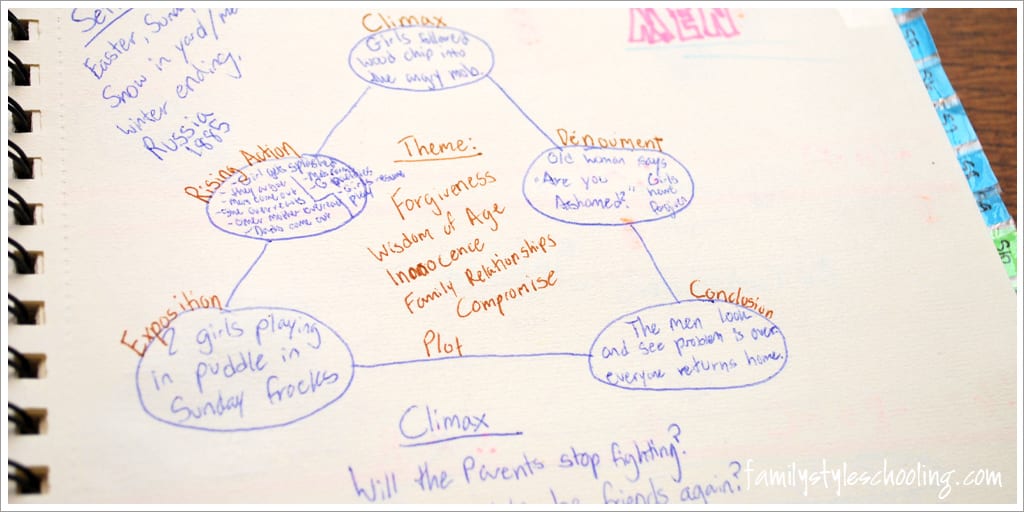 Easter, Sund
Snow in yard/me
winter ending.
Russia
1885
NEW
Climax
Girls followed
wood chip into
the angry mob
Rising Action
- Girl gets splashed
- they argue
- men come out
Theme:
Forgiveness
Wisdom of Age
Innocence
Family Relationships
Compromise
Dénoument
Old woman says
"Are you Girls
Ashamed?" have
forgiven
Exposition
2 girls playing
in puddle in
Sunday frocks
Plot
Conclusion
The men look
and see problem is over.
everyone returns home.
Climax
Will the Parents stop fighting?
be friends again?
familystyleschooling.com